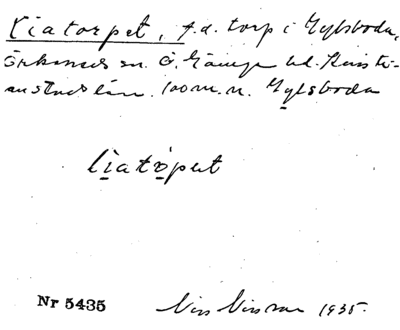 Liatorpet, f.d. torp i Gylsboda,
Örkeneds sn. Ö. Göinge hd. Kristi-
anstads län. 100 m. n. Gylsboda
liatȯpet
Nr 5435 1935.